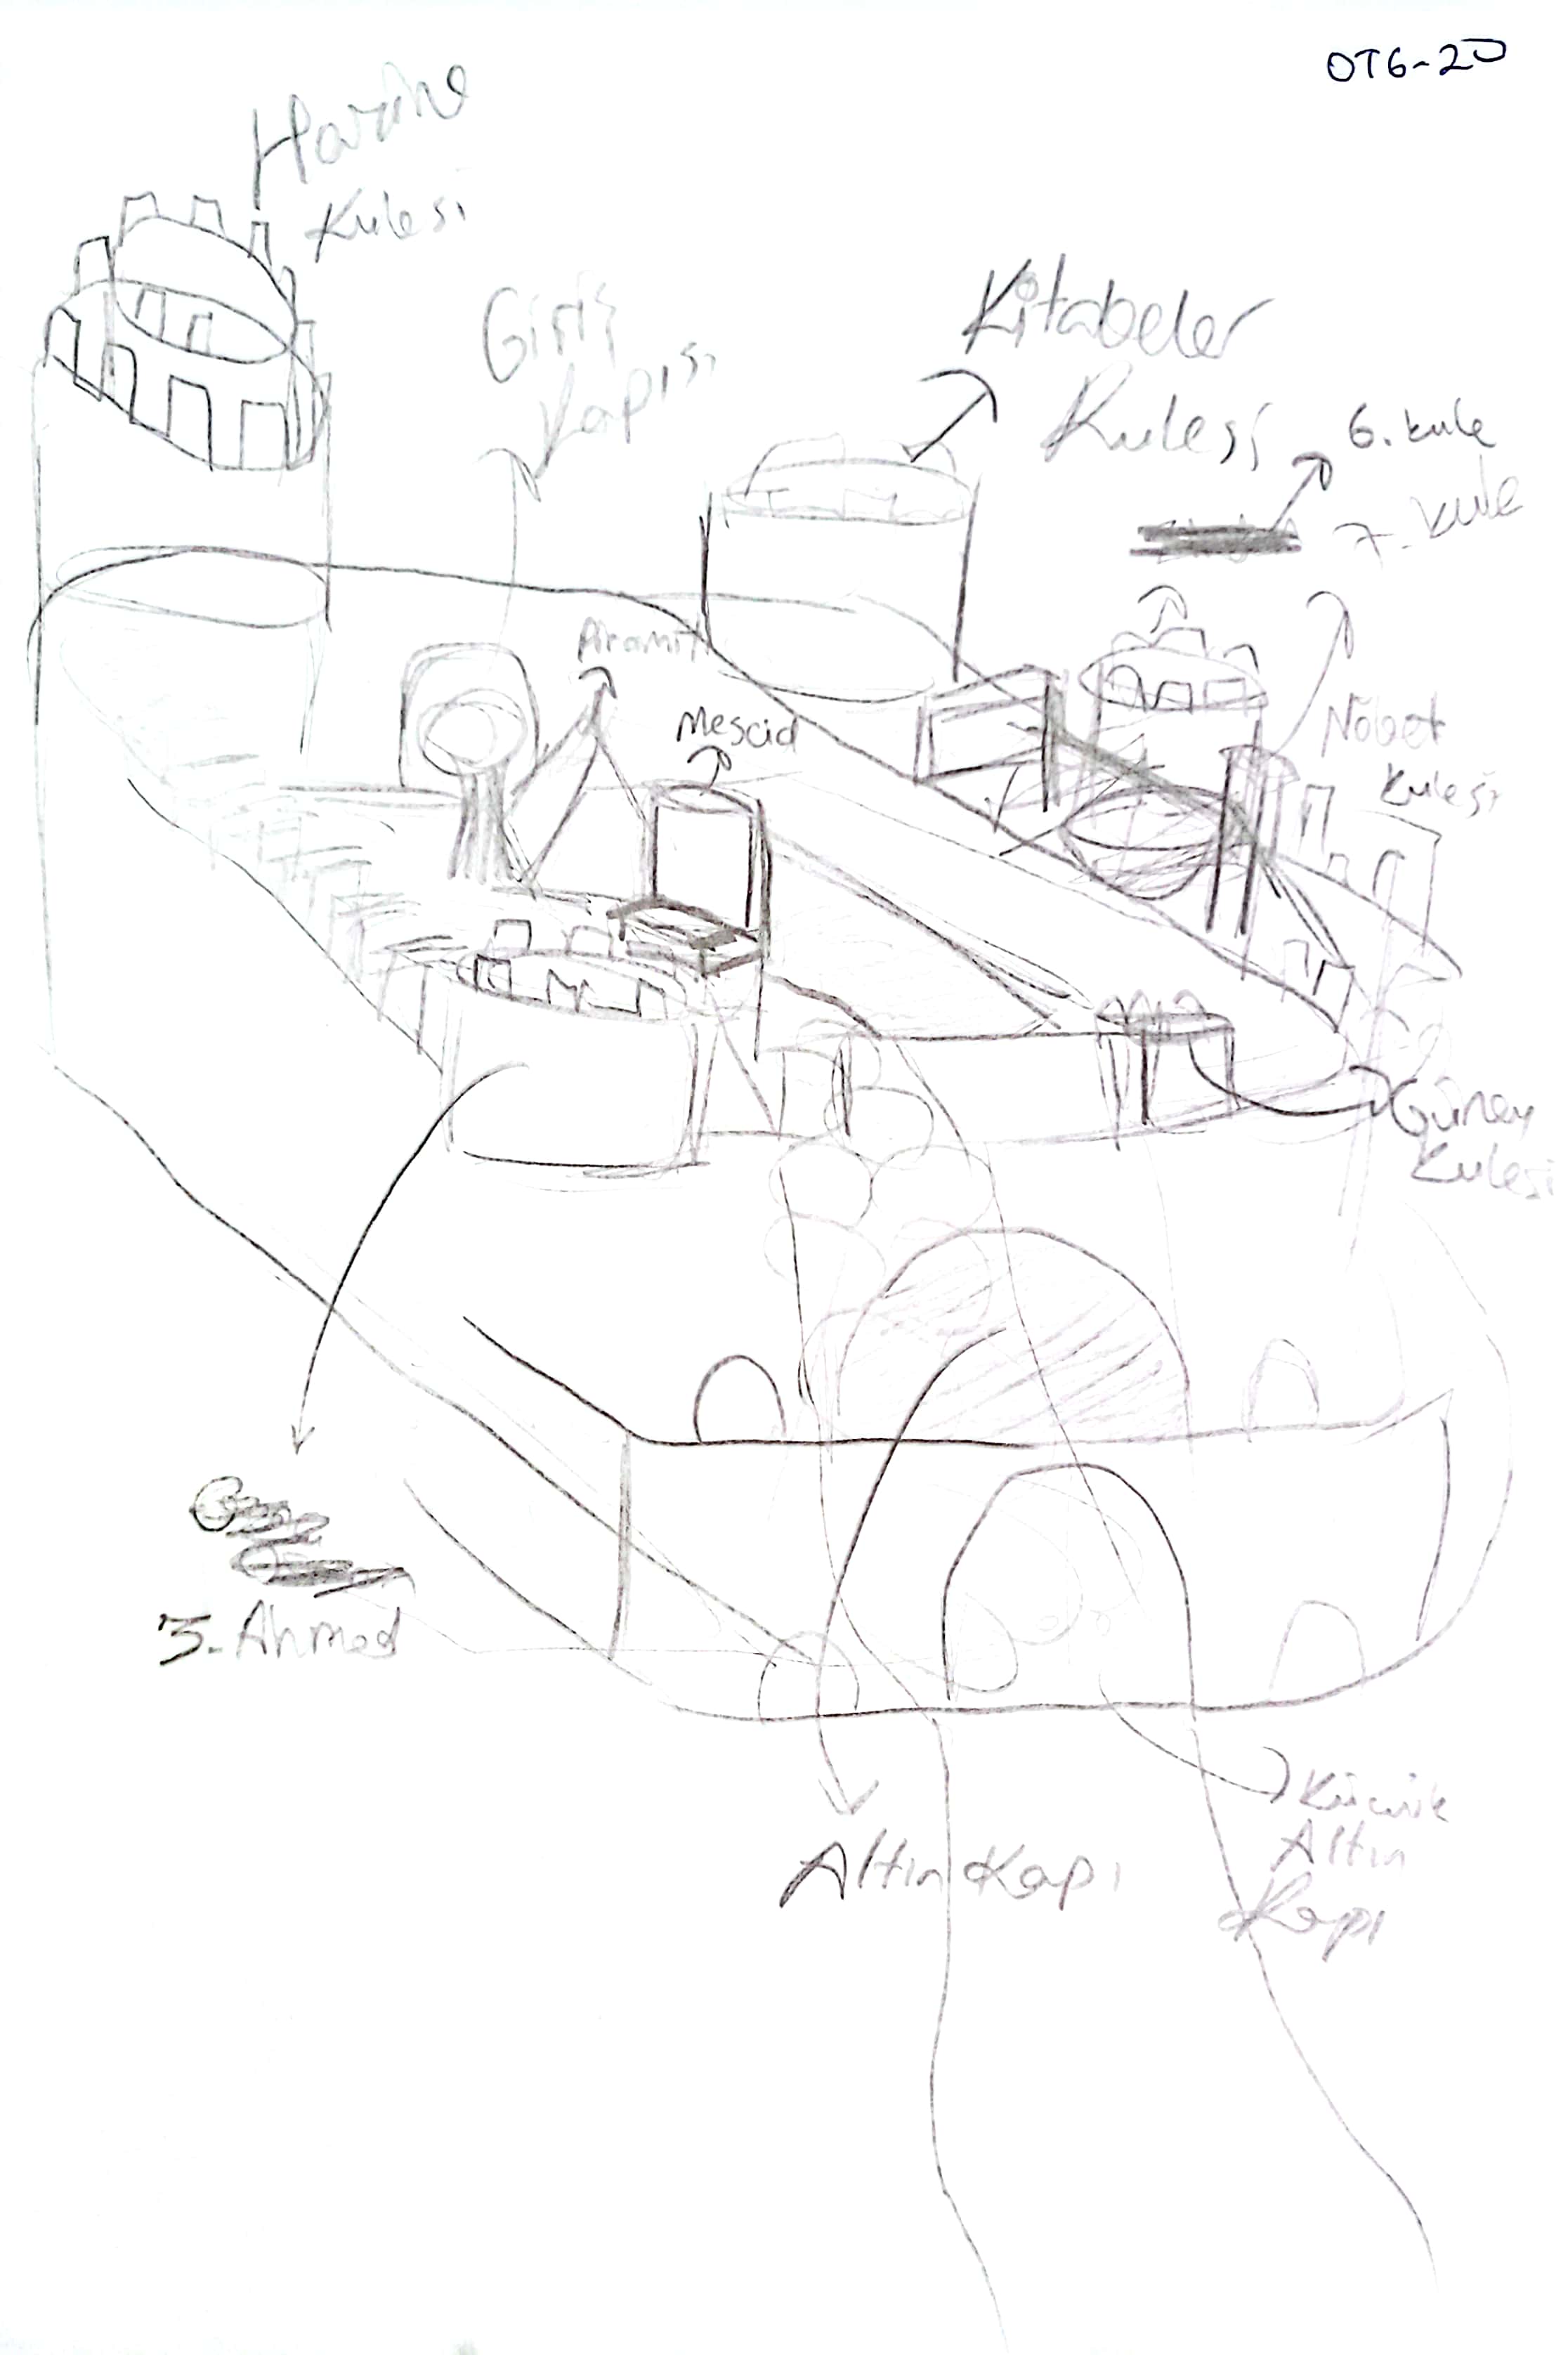 OTG-20
Hazine
Kulesi
Giriş
Kapısı
Kitabeler
Kulesi
6. kule
7. kule
Piramit
Mescid
Nöbet
Kulesi
Güney
Kulesi
3. Ahmed
Altın Kapı
Küçük
Altın
Kapı